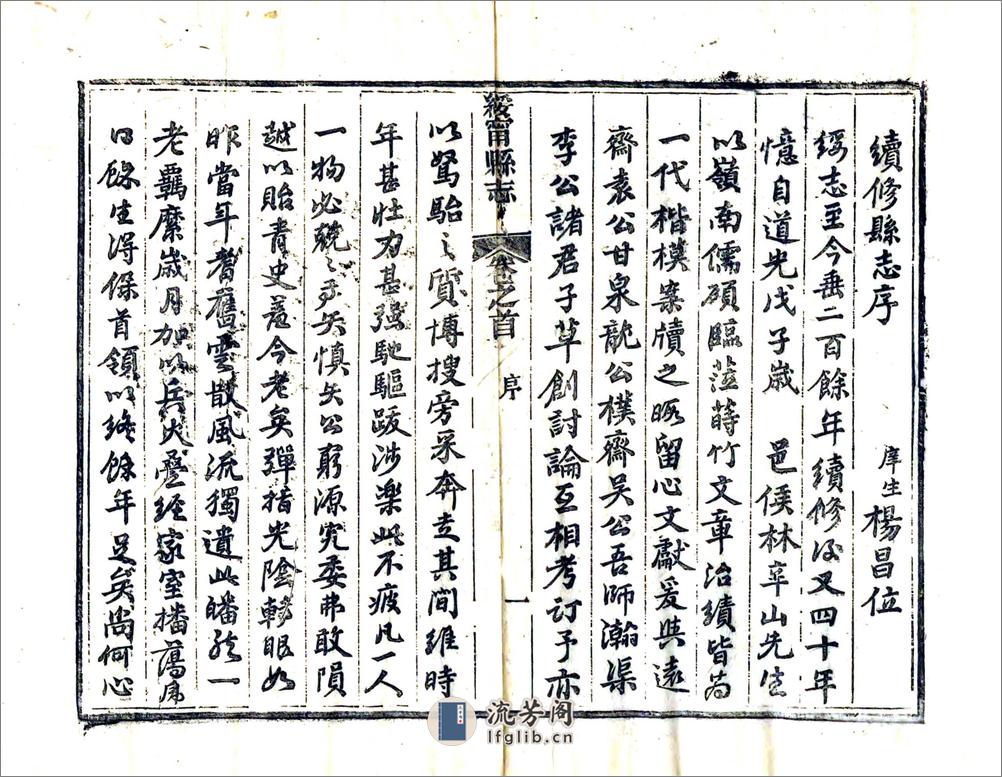 續修縣志序
庠生楊昌位
綏志至今垂二百餘年續修後又四十年
憶自道光戊子歲 邑侯林辛山先生
以嶺南儒碩臨蒞蒔竹文章治績皆為
一代楷模案牘之暇留心文獻爰與遠
齋袁公甘泉龍公樸齋吳公吾師瀚渠
李公諸君子草創討論互相考訂予亦
綏甯縣志
卷之首
序
一
以駑駘之質博搜旁采奔走其間維時
年甚壯力甚强馳驅跋涉樂此不疲凡一人
一物必兢兢乎矢慎矢公窮源究委弗敢隕
越以貽青史羞今老矣彈指光陰轉眼如
昨當年耆舊雲散風流獨遺此皤然一
老羈縻歲月加以兵火疊經家室播蕩席
日餘生得保首領以終餘年足矣尚何心
流芳阁
lfglib.cn